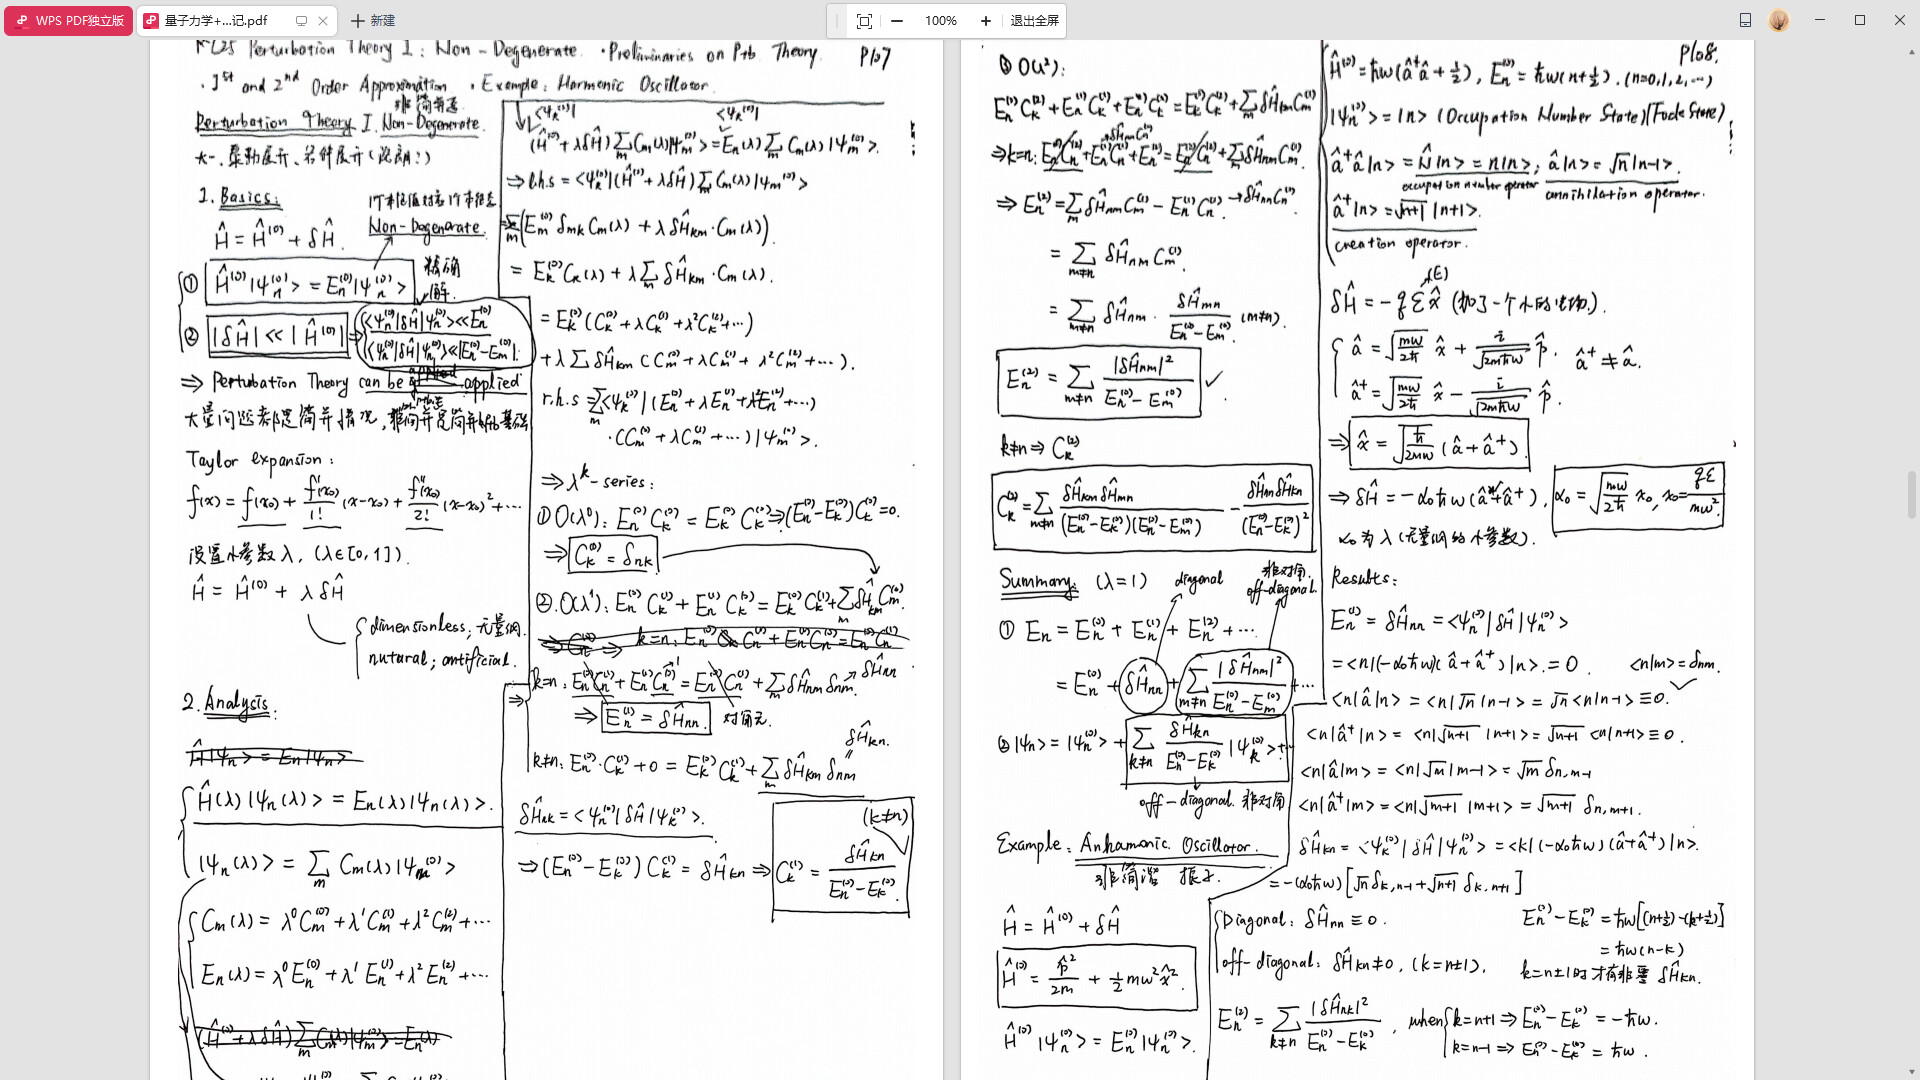 WPS PDF独立版
量子力学+...记.pdf
新建
100%
退出全屏
Perturbation Theory I: Non-Degenerate. · Preliminaries on Ptb Theory. P107
· 1st and 2nd Order Approximation · Example: Harmonic Oscillator.
Perturbation Theory I. Non-Degenerate.
1. Basics:
Non-Degenerate.
Ĥ = Ĥ⁽⁰⁾ + δĤ.
① Ĥ⁽⁰⁾|ψn⁽⁰⁾> = En⁽⁰⁾|ψn⁽⁰⁾>
精确解.
② |δĤ| << |Ĥ⁽⁰⁾| ⇒ <ψn⁽⁰⁾|δĤ|ψn⁽⁰⁾> << En⁽⁰⁾
<ψn⁽⁰⁾|δĤ|ψn⁽⁰⁾> << |En⁽⁰⁾-Em⁽⁰⁾|.
⇒ Perturbation Theory can be applied
Taylor expansion:
f(x) = f(x₀) + f'(x₀)/1! (x-x₀) + f''(x₀)/2! (x-x₀)² + ···
设置小参数λ, (λ∈[0,1]).
Ĥ = Ĥ⁽⁰⁾ + λδĤ
dimensionless; 无量纲.
nutural; antificial.
2. Analysis:
Ĥ|ψn> = En|ψn>
Ĥ(λ)|ψn(λ)> = En(λ)|ψn(λ)>.
|ψn(λ)> = Σm Cm(λ)|ψm⁽⁰⁾>
Cm(λ) = λ⁰Cm⁽⁰⁾ + λ¹Cm⁽¹⁾ + λ²Cm⁽²⁾ + ···
En(λ) = λ⁰En⁽⁰⁾ + λ¹En⁽¹⁾ + λ²En⁽²⁾ + ···
(Ĥ⁽⁰⁾ + λδĤ) Σm Cm(λ)|ψm⁽⁰⁾> = En(λ)
<ψk⁽⁰⁾| <ψk⁽⁰⁾|
(Ĥ⁽⁰⁾ + λδĤ) Σm Cm(λ)|ψm⁽⁰⁾> = En(λ) Σm Cm(λ)|ψm⁽⁰⁾>.
⇒ l.h.s = <ψk⁽⁰⁾|(Ĥ⁽⁰⁾ + λδĤ) Σm Cm(λ)|ψm⁽⁰⁾>
= Σm (Em⁽⁰⁾ δmk Cm(λ) + λδĤkm · Cm(λ)).
= Ek⁽⁰⁾Ck(λ) + λ Σm δĤkm · Cm(λ).
= Ek⁽⁰⁾(Ck⁽⁰⁾ + λCk⁽¹⁾ + λ²Ck⁽²⁾ + ···)
+ λ Σ δĤkm (Cm⁽⁰⁾ + λCm⁽¹⁾ + λ²Cm⁽²⁾ + ···).
r.h.s = Σm <ψk⁽⁰⁾|(En⁽⁰⁾ + λEn⁽¹⁾ + λ²En⁽²⁾ + ···)
· (Cm⁽⁰⁾ + λCm⁽¹⁾ + ···)|ψm⁽⁰⁾>.
⇒ λᵏ-series:
① O(λ⁰): En⁽⁰⁾Ck⁽⁰⁾ = Ek⁽⁰⁾Ck⁽⁰⁾ ⇒ (En⁽⁰⁾-Ek⁽⁰⁾)Ck⁽⁰⁾ = 0.
⇒ Ck⁽⁰⁾ = δnk
②. O(λ¹): En⁽⁰⁾Ck⁽¹⁾ + En⁽¹⁾Ck⁽⁰⁾ = Ek⁽⁰⁾Ck⁽¹⁾ + Σm δĤkm Cm⁽⁰⁾.
k=n: En⁽⁰⁾Cn⁽¹⁾ + En⁽¹⁾Cn⁽⁰⁾ = En⁽⁰⁾Cn⁽¹⁾
k=n: En⁽⁰⁾Cn⁽¹⁾ + En⁽¹⁾Cn⁽⁰⁾ = En⁽⁰⁾Cn⁽¹⁾ + Σm δĤnm δnm. δĤnn
⇒ En⁽¹⁾ = δĤnn. 对角元.
δĤkn.
k≠n: En⁽⁰⁾·Ck⁽¹⁾ + 0 = Ek⁽⁰⁾Ck⁽¹⁾ + Σm δĤkm δnm
δĤnk = <ψn⁽⁰⁾|δĤ|ψk⁽⁰⁾>.
⇒ (En⁽⁰⁾-Ek⁽⁰⁾)Ck⁽¹⁾ = δĤkn ⇒ Ck⁽¹⁾ = δĤkn/(En⁽⁰⁾-Ek⁽⁰⁾). (k≠n)
P108.
③ O(λ²):
En⁽⁰⁾Ck⁽²⁾ + En⁽¹⁾Ck⁽¹⁾ + En⁽²⁾Ck⁽⁰⁾ = Ek⁽⁰⁾Ck⁽²⁾ + Σm δĤkm Cm⁽¹⁾
⇒ k=n: En⁽⁰⁾Cn⁽²⁾ + En⁽¹⁾Cn⁽¹⁾ + En⁽²⁾ = En⁽⁰⁾Cn⁽²⁾ + Σm δĤnm Cm⁽¹⁾.
⇒ En⁽²⁾ = Σm δĤnm Cm⁽¹⁾ - En⁽¹⁾Cn⁽¹⁾. → δĤnn Cn⁽¹⁾.
= Σm≠n δĤnm Cm⁽¹⁾.
= Σm≠n δĤnm · δĤmn/(En⁽⁰⁾-Em⁽⁰⁾) (m≠n).
En⁽²⁾ = Σm≠n |δĤnm|²/(En⁽⁰⁾-Em⁽⁰⁾)
k≠n ⇒ Ck⁽²⁾
Ck⁽²⁾ = Σm≠n δĤkm δĤmn/((En⁽⁰⁾-Ek⁽⁰⁾)(En⁽⁰⁾-Em⁽⁰⁾)) - δĤnn δĤkn/(En⁽⁰⁾-Ek⁽⁰⁾)²
Summary: (λ=1) diagonal 非对角. off-diagonal.
① En = En⁽⁰⁾ + En⁽¹⁾ + En⁽²⁾ + ···
= En⁽⁰⁾ + δĤnn + Σm≠n |δĤnm|²/(En⁽⁰⁾-Em⁽⁰⁾) + ···
② |ψn> = |ψn⁽⁰⁾> + Σk≠n δĤkn/(En⁽⁰⁾-Ek⁽⁰⁾) |ψk⁽⁰⁾> + ··
off-diagonal. 非对角
Example: Anharmonic Oscillator.
非简谐 振子.
Ĥ = Ĥ⁽⁰⁾ + δĤ
Ĥ⁽⁰⁾ = p̂²/2m + ½mω²x̂².
Ĥ⁽⁰⁾|ψn⁽⁰⁾> = En⁽⁰⁾|ψn⁽⁰⁾>.
Ĥ⁽⁰⁾ = ħω(â⁺â + ½), En⁽⁰⁾ = ħω(n+½). (n=0,1,2,···)
|ψn⁽⁰⁾> = |n> (Occupation Number State)(Fock State)
â⁺â|n> = N̂|n> = n|n>; â|n> = √n|n-1>.
occupation number operator annihilation operator.
â⁺|n> = √(n+1)|n+1>.
creation operator.
δĤ = -qεx̂ (加了一个小的电场). (E)
â = √(mω/2ħ) x̂ + i/√(2mħω) p̂. â⁺ ≠ â.
â⁺ = √(mω/2ħ) x̂ - i/√(2mħω) p̂.
⇒ x̂ = √(ħ/2mω) (â + â⁺).
⇒ δĤ = -α₀ħω(â+â⁺). α₀ = √(mω/2ħ) x₀, x₀ = qε/mω².
α₀为λ(无量纲的小参数).
Results:
En⁽¹⁾ = δĤnn = <ψn⁽⁰⁾|δĤ|ψn⁽⁰⁾>
= <n|(-α₀ħω)(â+â⁺)|n> = 0. <n|m> = δnm.
<n|â|n> = <n|√n|n-1> = √n<n|n-1> ≡ 0.
<n|â⁺|n> = <n|√(n+1)|n+1> = √(n+1)<n|n+1> ≡ 0.
<n|â|m> = <n|√m|m-1> = √m δn,m-1
<n|â⁺|m> = <n|√(m+1)|m+1> = √(m+1) δn,m+1.
δĤkn = <ψk⁽⁰⁾|δĤ|ψn⁽⁰⁾> = <k|(-α₀ħω)(â+â⁺)|n>.
= -(α₀ħω)[√n δk,n-1 + √(n+1) δk,n+1]
Diagonal: δĤnn ≡ 0. En⁽⁰⁾-Ek⁽⁰⁾ = ħω[(n+½)-(k+½)]
= ħω(n-k)
off-diagonal: δĤkn≠0, (k=n±1). k=n±1时才有非零 δĤkn.
En⁽²⁾ = Σk≠n |δĤnk|²/(En⁽⁰⁾-Ek⁽⁰⁾), when k=n+1 ⇒ En⁽⁰⁾-Ek⁽⁰⁾ = -ħω.
k=n-1 ⇒ En⁽⁰⁾-Ek⁽⁰⁾ = ħω.